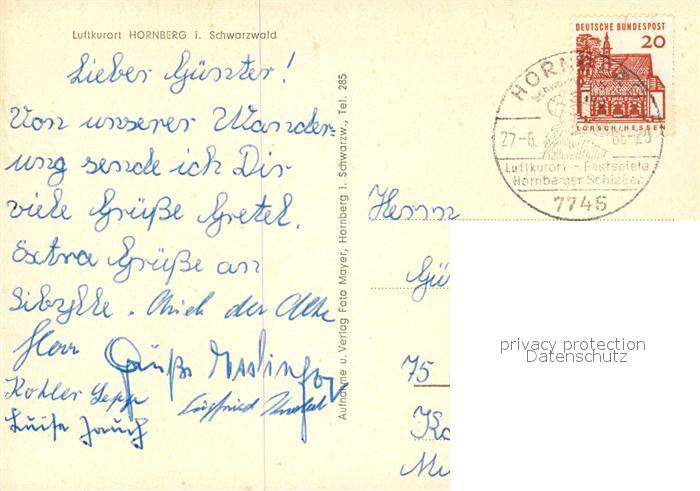 Luftkurort HORNBERG i. Schwarzwald
Lieber Günter!
Von unserer Wander-
ung sende ich Dir
viele Grüße Gretel.
Extra Grüße an
Sibylle. Auch der Alte
Herr
Grüße
Kohler Sepp
Luise Jauch
Siegfried
Aufnahme u. Verlag Foto Mayer, Hornberg i. Schwarzw., Tel. 285
DEUTSCHE BUNDESPOST
20
LORSCH/HESSEN
HORN
27-6
Luftkurort - Festspiele
Hornberger Schießen
7746
Herrn
Gü
75
Ka
privacy protection
Datenschutz